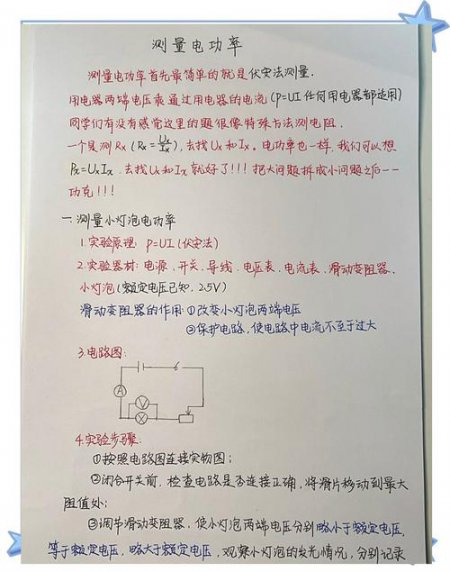 测量电功率
测量电功率首先最简单的就是伏安法测量.
用电器两端电压乘通过用电器的电流(P=UI任何用电器都适用)
同学们有没有感觉这里的题很像特殊方法测电阻.
一个是测Rx(Rx=Ux/Ix),去找Ux和Ix。电功率也一样,我们可以想
Px=UxIx,去找Ux和Ix就好了!!!把大问题拆成小问题之后一一
功克!!!
一.测量小灯泡电功率
1.实验原理:P=UI(伏安法)
2.实验器材:电源、开关、导线、电压表、电流表、滑动变阻器、
小灯泡(额定电压已知,2.5V)
滑动变阻器的作用①改变小灯泡两端电压
②保护电路,使电路中电流不至于过大
3.电路图:
A
V
4.实验步骤:
①按照电路图连接实物图;
②闭合开关前,检查电路是否连接正确,将滑片移动到最大
阻值处;
③调节滑动变阻器,使小灯泡两端电压分别略小于额定电压,
等于额定电压,略大于额定电压,观察小灯泡的发光情况,分别记录